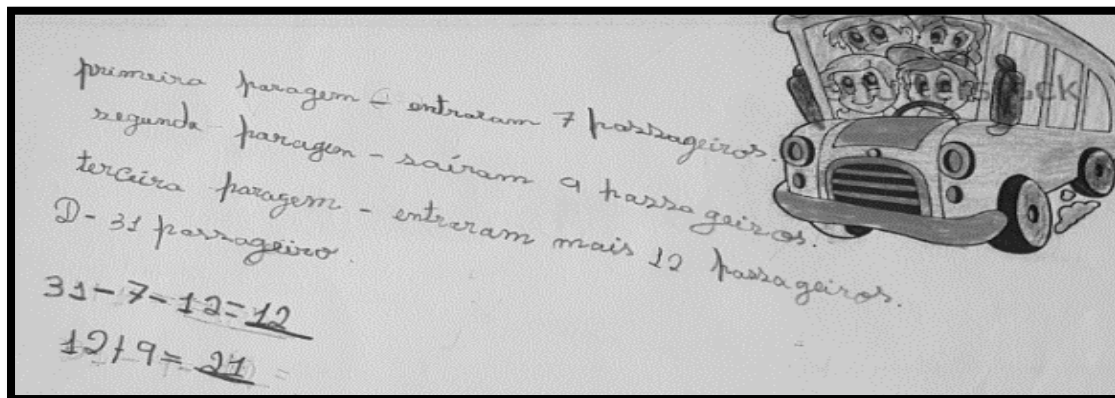 primeira paragem - entraram 7 passageiros.
segunda paragem - saíram 9 passageiros.
terceira paragem - entraram mais 12 passageiros.
D - 31 passageiro.
31-7-12=12
12+9=21